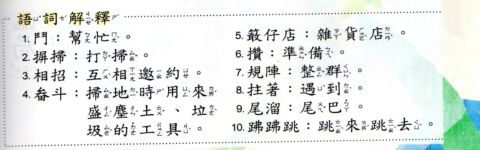 語詞解釋
1. 鬥：幫忙。
2. 摒掃：打掃。
3. 相招：互相邀約。
4. 畚斗：掃地時用來
盛塵土、垃
圾的工具。
5. 𥴊仔店：雜貨店。
6. 攢：準備。
7. 規陣：整群。
8. 拄著：遇到。
9. 尾溜：尾巴。
10. 跳：跳來跳去。